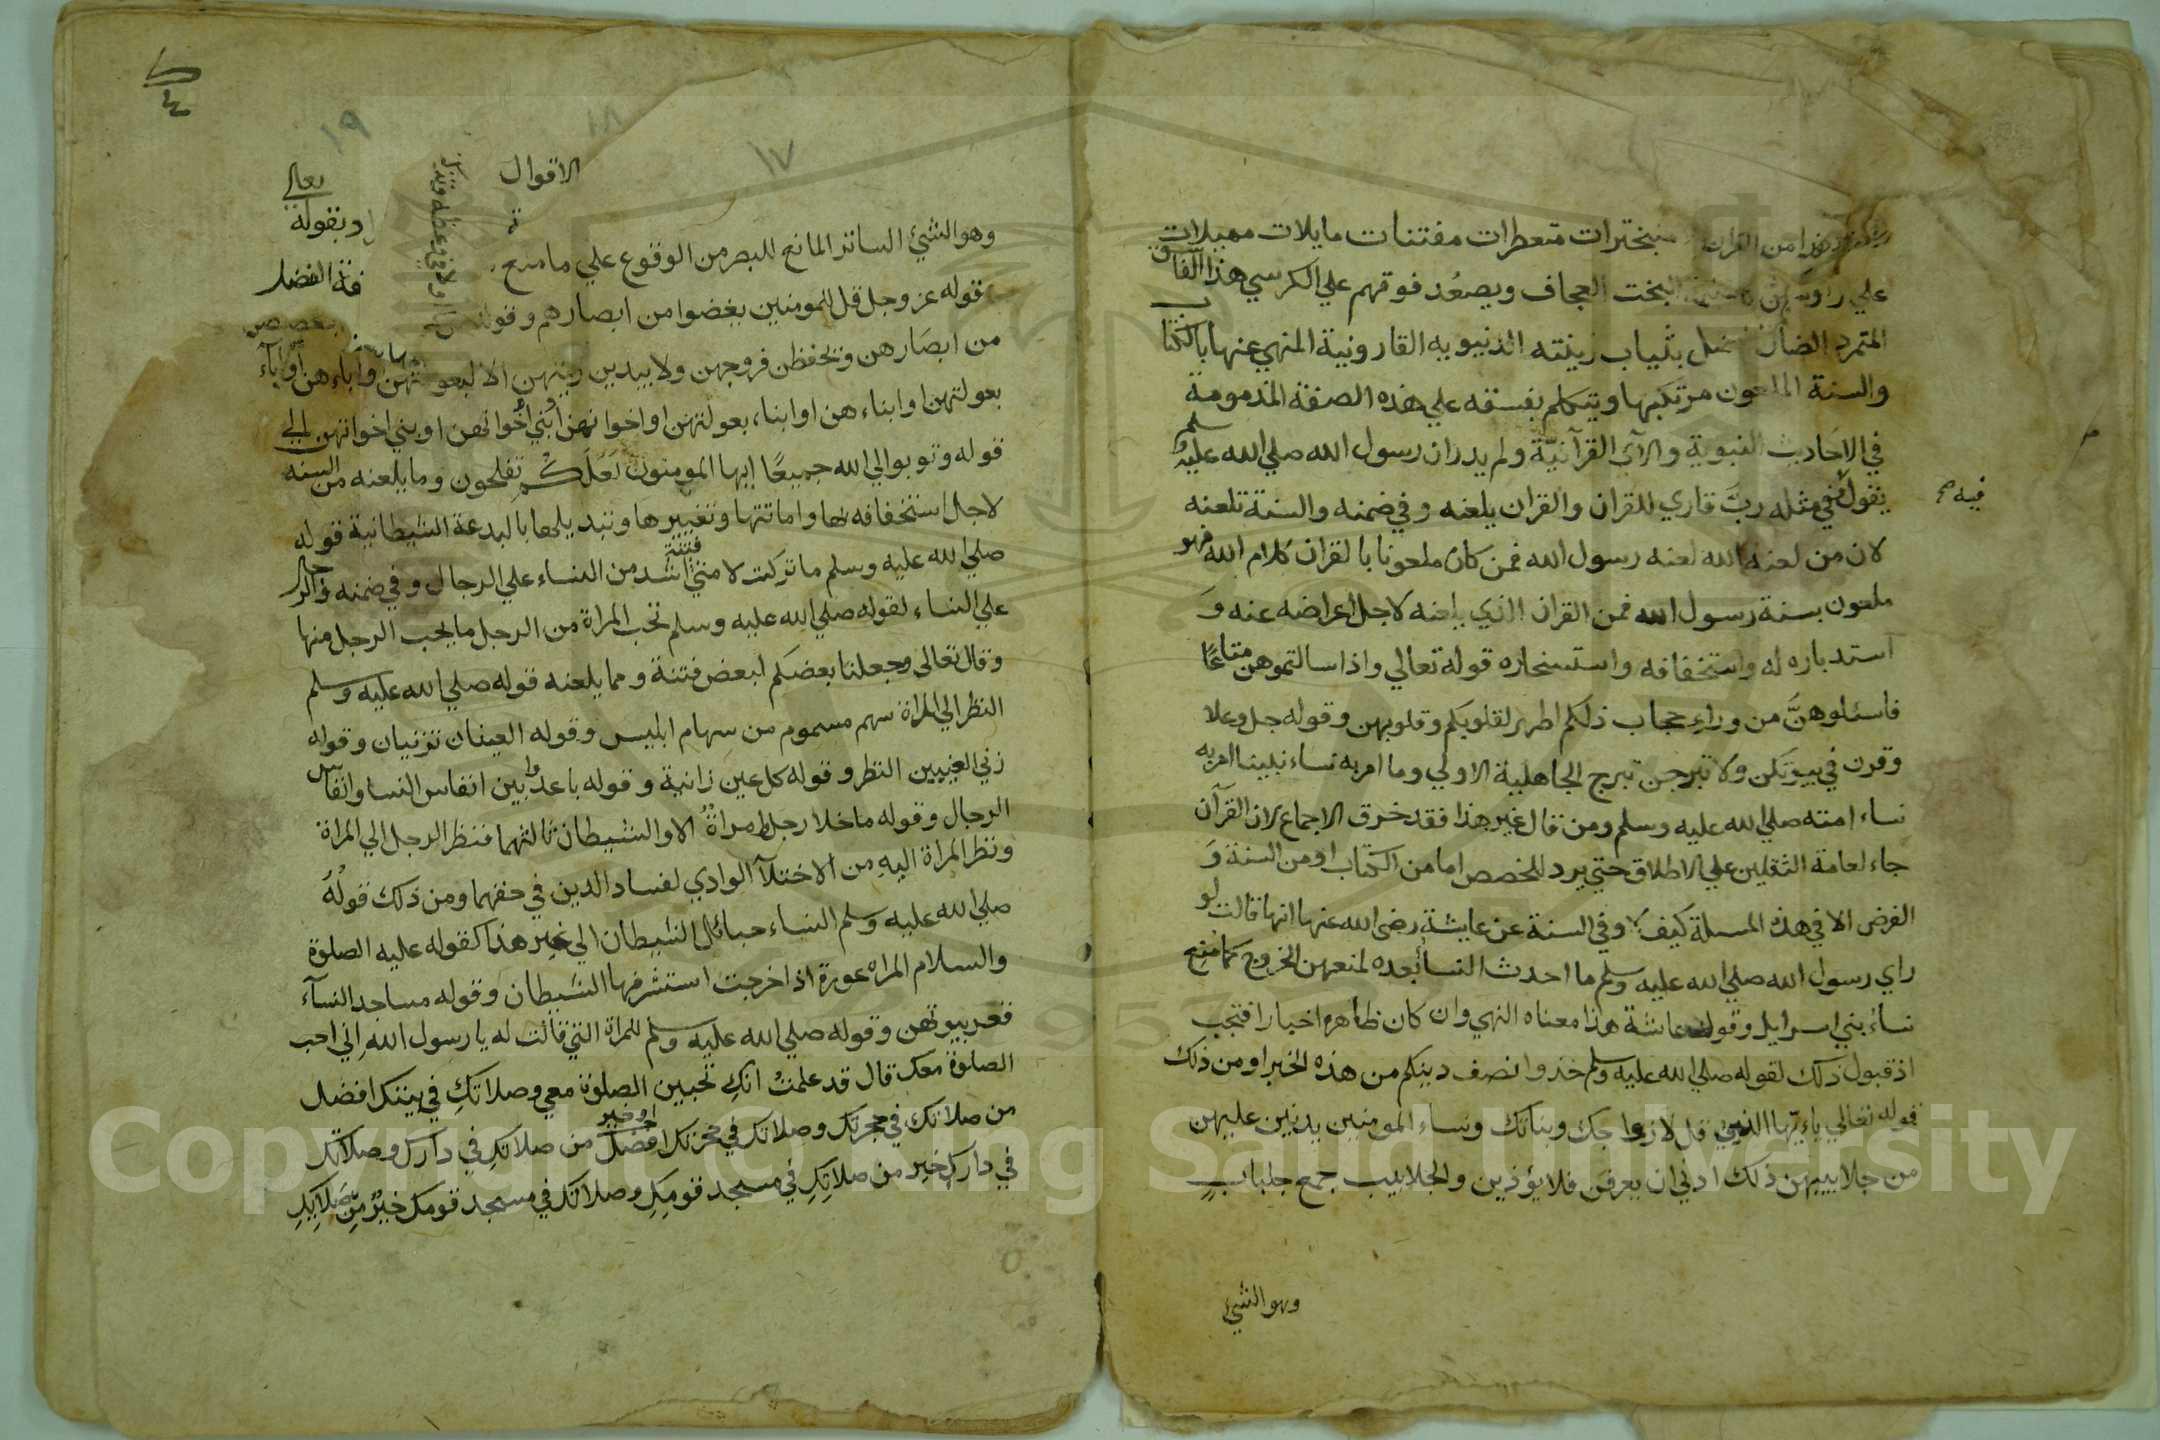 من القران متبخترات متعطرات مفتنات مايلات مميلات
علي البخت العجاف ويصعد فوقهم علي الكرسي هذا الفاسق
المتمرد الضال بثياب زينته الدنيويه القارونية المنهي عنها بالكتاب
والسنة الملعون مرتكبها ويتكلم بفسقه علي هذه الصفة المذمومة
في الاحاديث النبوية والآي القرآنية ولم يدر ان رسول الله صلي الله عليه وسلم
يقول في مثله رب قاري للقران والقران يلعنه وفي ضمنه والسنة تلعنه
فيه
لان من لعنه الله لعنه رسول الله فمن كان ملعونا بالقران كلام الله فهو
ملعون بسنة رسول الله فمن القران الذي يلعنه لاجل اعراضه عنه و
استدباره له واستخفافه واستسخاره قوله تعالي واذا سالتموهن متاعًا
فاسئلوهنَّ من وراءِ حجاب ذلكم اطهر لقلوبكم وقلوبهن وقوله جل وعلا
وقرن في بيوتكن ولا تبرجن تبرج الجاهلية الاولي وما امر به نساء نبينا امر به
نساء امته صلي الله عليه وسلم ومن قال غير هذا فقد خرق الاجماع لان القرآن
جاء لعامة الثقلين علي الاطلاق حتي يرد المخصص اما من الكتاب او من السنة و
الفرض الا في هذه المسلة كيف لا وفي السنة عن عايشة رضي الله عنها انها قالت لو
راي رسول الله صلي الله عليه وسلم ما احدث النسأ بعده لمنعهن الخروج كما منع
نساءُ بني اسرايل وقول عائشة هذا معناه النهي وان كان ظاهره اخبارا فتجب
اذ قبول ذلك لقوله صلي الله عليه وسلم خذوا نصف دينكم من هذه الخبرا ومن ذلك
قوله تعالي ياءيّها النبي قل لازواجك وبناتك ونساء المومنين يدنين عليهن
من جلابيبهن ذلك ادني ان يعرفن فلا يؤذين والجلابيب جمع جلباب
وهو الشيئ
١٧
١٨
١٩
الاقوال
تعالي
وبقوله
الفضل
وهو الشيئ الساتر المانع للبصر من الوقوع علي ما
قوله عز وجل قل للمومنين يغضوا من ابصارهم وقوله
من ابصارهن ويحفظن فروجهن ولا يبدين زينتهن الا لبعولتهن او اباءهن او اباء
بعولتهن او ابناءهن او ابناء بعولتهن او اخوانهن او بني اخوانهن او بني اخواتهن الي
قوله وتوبوا الي الله جميعًا ايها المومنون لعلكم تفلحون وما يلعنه من السنه
لاجل استخفافه بها واماتتها وتغييرها وتبديلها بالبدعة الشيطانية قوله
صلي الله عليه وسلم ما تركت لامتي فتنة اشد من النساء علي الرجال وفي ضمنه والرجال
علي النساء لقوله صلي الله عليه وسلم تحب المراة من الرجل ما يحب الرجل منها
وقال تعالي وجعلنا بعضكم لبعض فتنة ومما يلعنه قوله صلي الله عليه وسلم
النظر الي المراة سهم مسموم من سهام ابليس وقوله العينان تزنيان وقوله
زني العينين النظر وقوله كل عين زانية وقوله باعدوا بين انفاس النسا وانفاس
الرجال وقوله ما خلا رجل بامراةٌ الا والشيطان ثالثهما فنظر الرجل الي المراة
ونظر المراة اليه من الاختلآ الوادي لفساد الدين في حقهما ومن ذلك قولهُ
صلي الله عليه وسلم النساء حبائل الشيطان الي غير هذا كقوله عليه الصلوة
والسلام المراه عورة اذا خرجت استشرفها الشيطان وقوله مساجد النسآء
قعر بيوتهن وقوله صلي الله عليه وسلم للمراة التي قالت له يا رسول الله اني احب
الصلوة معك قال قد علمتُ انكِ تحبين الصلوة معي وصلاتكِ في بيتك افضل
من صلاتك في حجرتك وصلاتك في حجرتك افضل او خير من صلاتكِ في دارك وصلاتك
في دارك خير من صلاتِكِ في مسجد قومِكِ وصلاتك في مسجد قومك خيرٌ مِن صَلاتِكِ